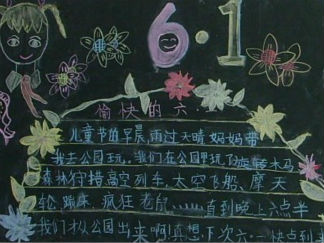 6·1
愉快的六
儿童节的早晨,雨过天晴妈妈带
我去公园玩,我们在公园里玩了旋转木马
森林狩猎高空列车,太空飞船、摩天
轮、蹦床、疯狂老鼠……直到晚上六点半
我们才从公园出来啊!真想下次六·一快点到